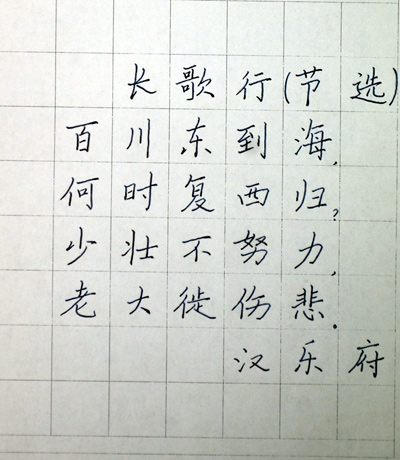 长歌行(节选)
百川东到海,
何时复西归?
少壮不努力,
老大徙伤悲.
汉乐府